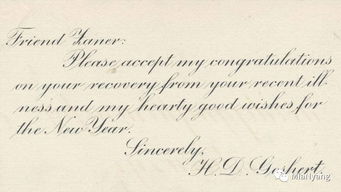 Friend Zaner:
Please accept my congratulations
on your recovery from your recent ill-
ness and my hearty good wishes for
the New Year.
Sincerely,
H. D. Goshert.
MiaHyang